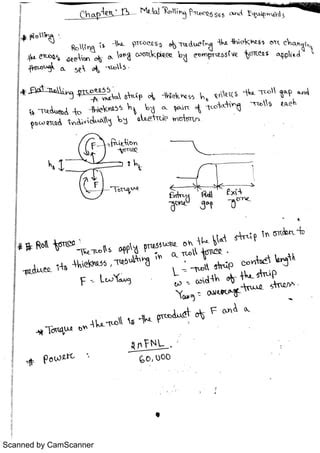 Chapter: 13 Metal Rolling Processes and Equipments
* Rolling:
Rolling is the process of reducing the thickness or changing
the cross section of a long workpiece by compressive forces applied
through a set of rolls.
* Flat Rolling process:
A metal strip of thickness h₀ enters the roll gap and
is reduced to thickness hf by a pair of rotating rolls each
powered individually by electric motors
F
friction force
h₀
hf
F
Torque
Entry zone
Roll gap
Exit zone
* Roll force:
The rolls apply pressure on the flat strip in order to
reduce its thickness, resulting in a roll force.
F = LwYavg
L = roll strip contact length
w = width of the strip
Yavg = average true stress.
* Torque on the roll is the product of F and a
* Power:
2πFNL
60,000
Scanned by CamScanner